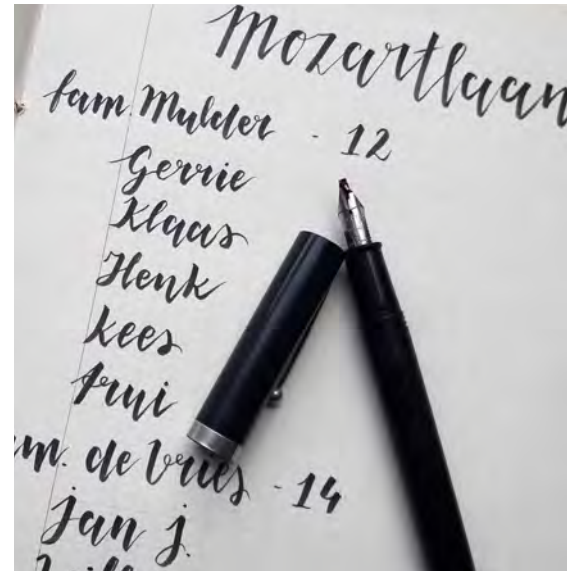 Mozartlaan
fam. Mulder - 12
Gerrie
Klaas
Henk
Kees
Trui
de Vries - 14
Jan J.